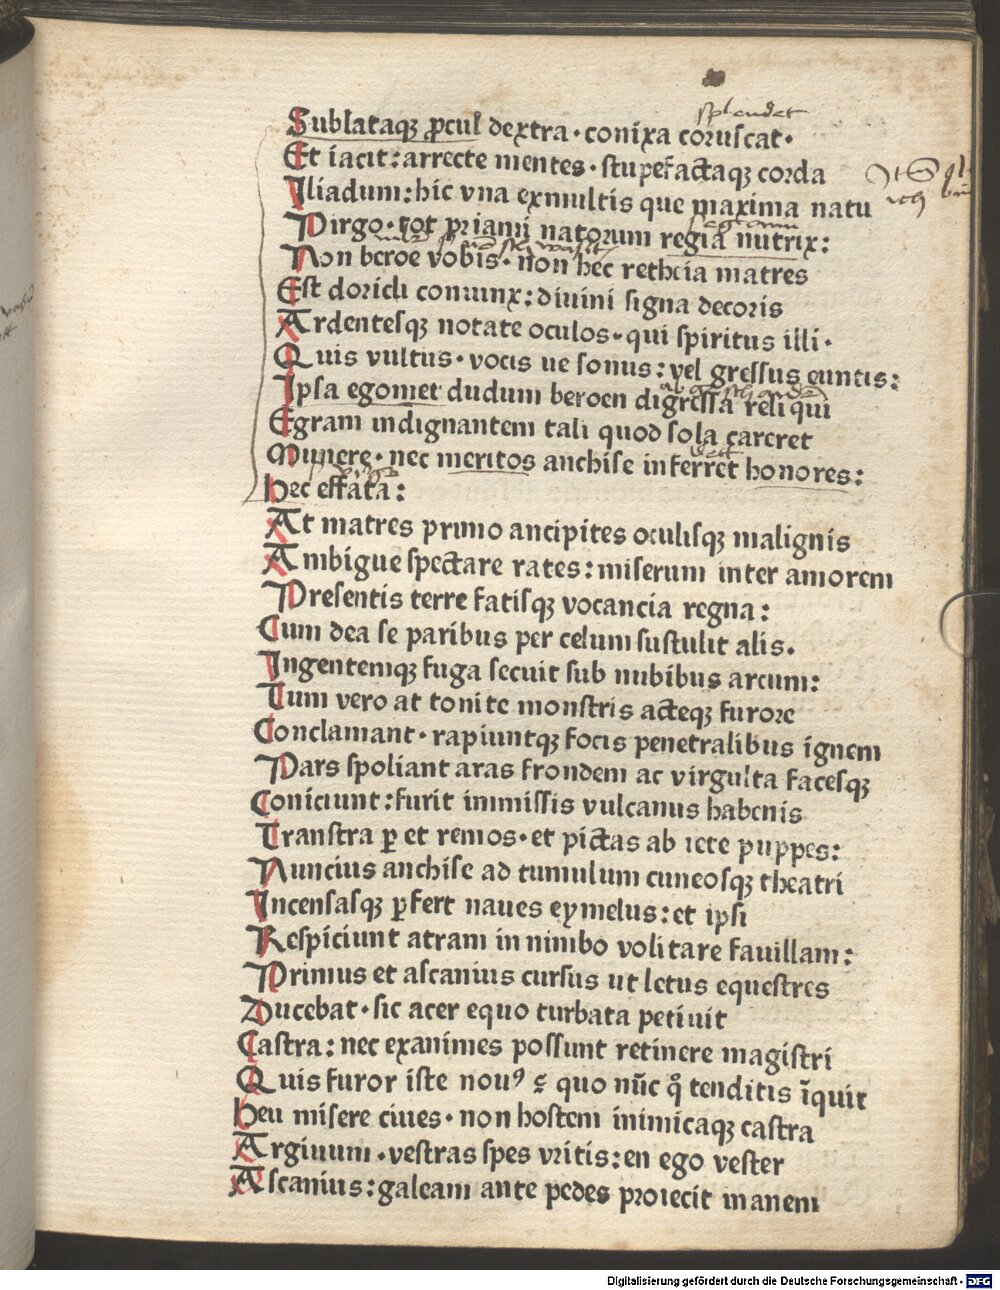 splendet
Sublataqꝫ ꝓcul dextra · conixa coruscat ·
Et iacit : arrecte mentes · stupefactaqꝫ corda
Iliadum : hic vna exmultis que maxima natu
Pirgo · tot priamij natorum regia nutrix :
Non beroe vobis · non hec retheia matres
Est doricli coniunx : diuini signa decoris
Ardentesqꝫ notate oculos · qui spiritus illi ·
Quis vultus · vocis ue sonus : vel gressus euntis :
Ipsa egomet dudum beroen digressa reliqui
Egram indignantem tali quod sola careret
Munere · nec meritos anchise inferret honores :
Hec effata :
At matres primo ancipites oculisqꝫ malignis
Ambigue spectare rates : miserum inter amorem
Presentis terre fatisqꝫ vocancia regna :
Cum dea se paribus per celum sustulit alis .
Ingentemqꝫ fuga secuit sub nubibus arcum :
Tum vero at tonite monstris acteqꝫ furore
Conclamant · rapiuntqꝫ focis penetralibus ignem
Pars spoliant aras frondem ac virgulta facesqꝫ
Coniciunt : furit immissis vulcanus habenis
Transtra ꝑ et remos · et pictas ab iete puppes :
Nuncius anchise ad tumulum cuneosqꝫ theatri
Incensasqꝫ ꝑfert naues eymelus : et ipsi
Respiciunt atram in nimbo volitare fauillam :
Primus et ascanius cursus ut letus equestres
Ducebat · sic acer equo turbata petiuit
Castra : nec exanimes possunt retinere magistri
Quis furor iste nouꝰ ꝫ quo nūc qͦ tenditis īquit
Heu misere ciues · non hostem inimicaqꝫ castra
Argiuum · vestras spes vritis : en ego vester
Ascanius : galeam ante pedes proiecit inanem
Digitalisierung gefördert durch die Deutsche Forschungsgemeinschaft - DFG